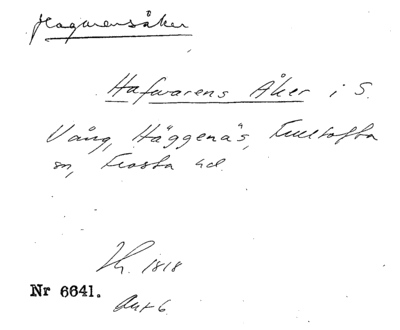 Hagarensåker
Hafwarens Åker i S.
Vång, Häggenäs, Fulltofta
sn, Frosta hd.
1818
Nr 6641.
Akt 6